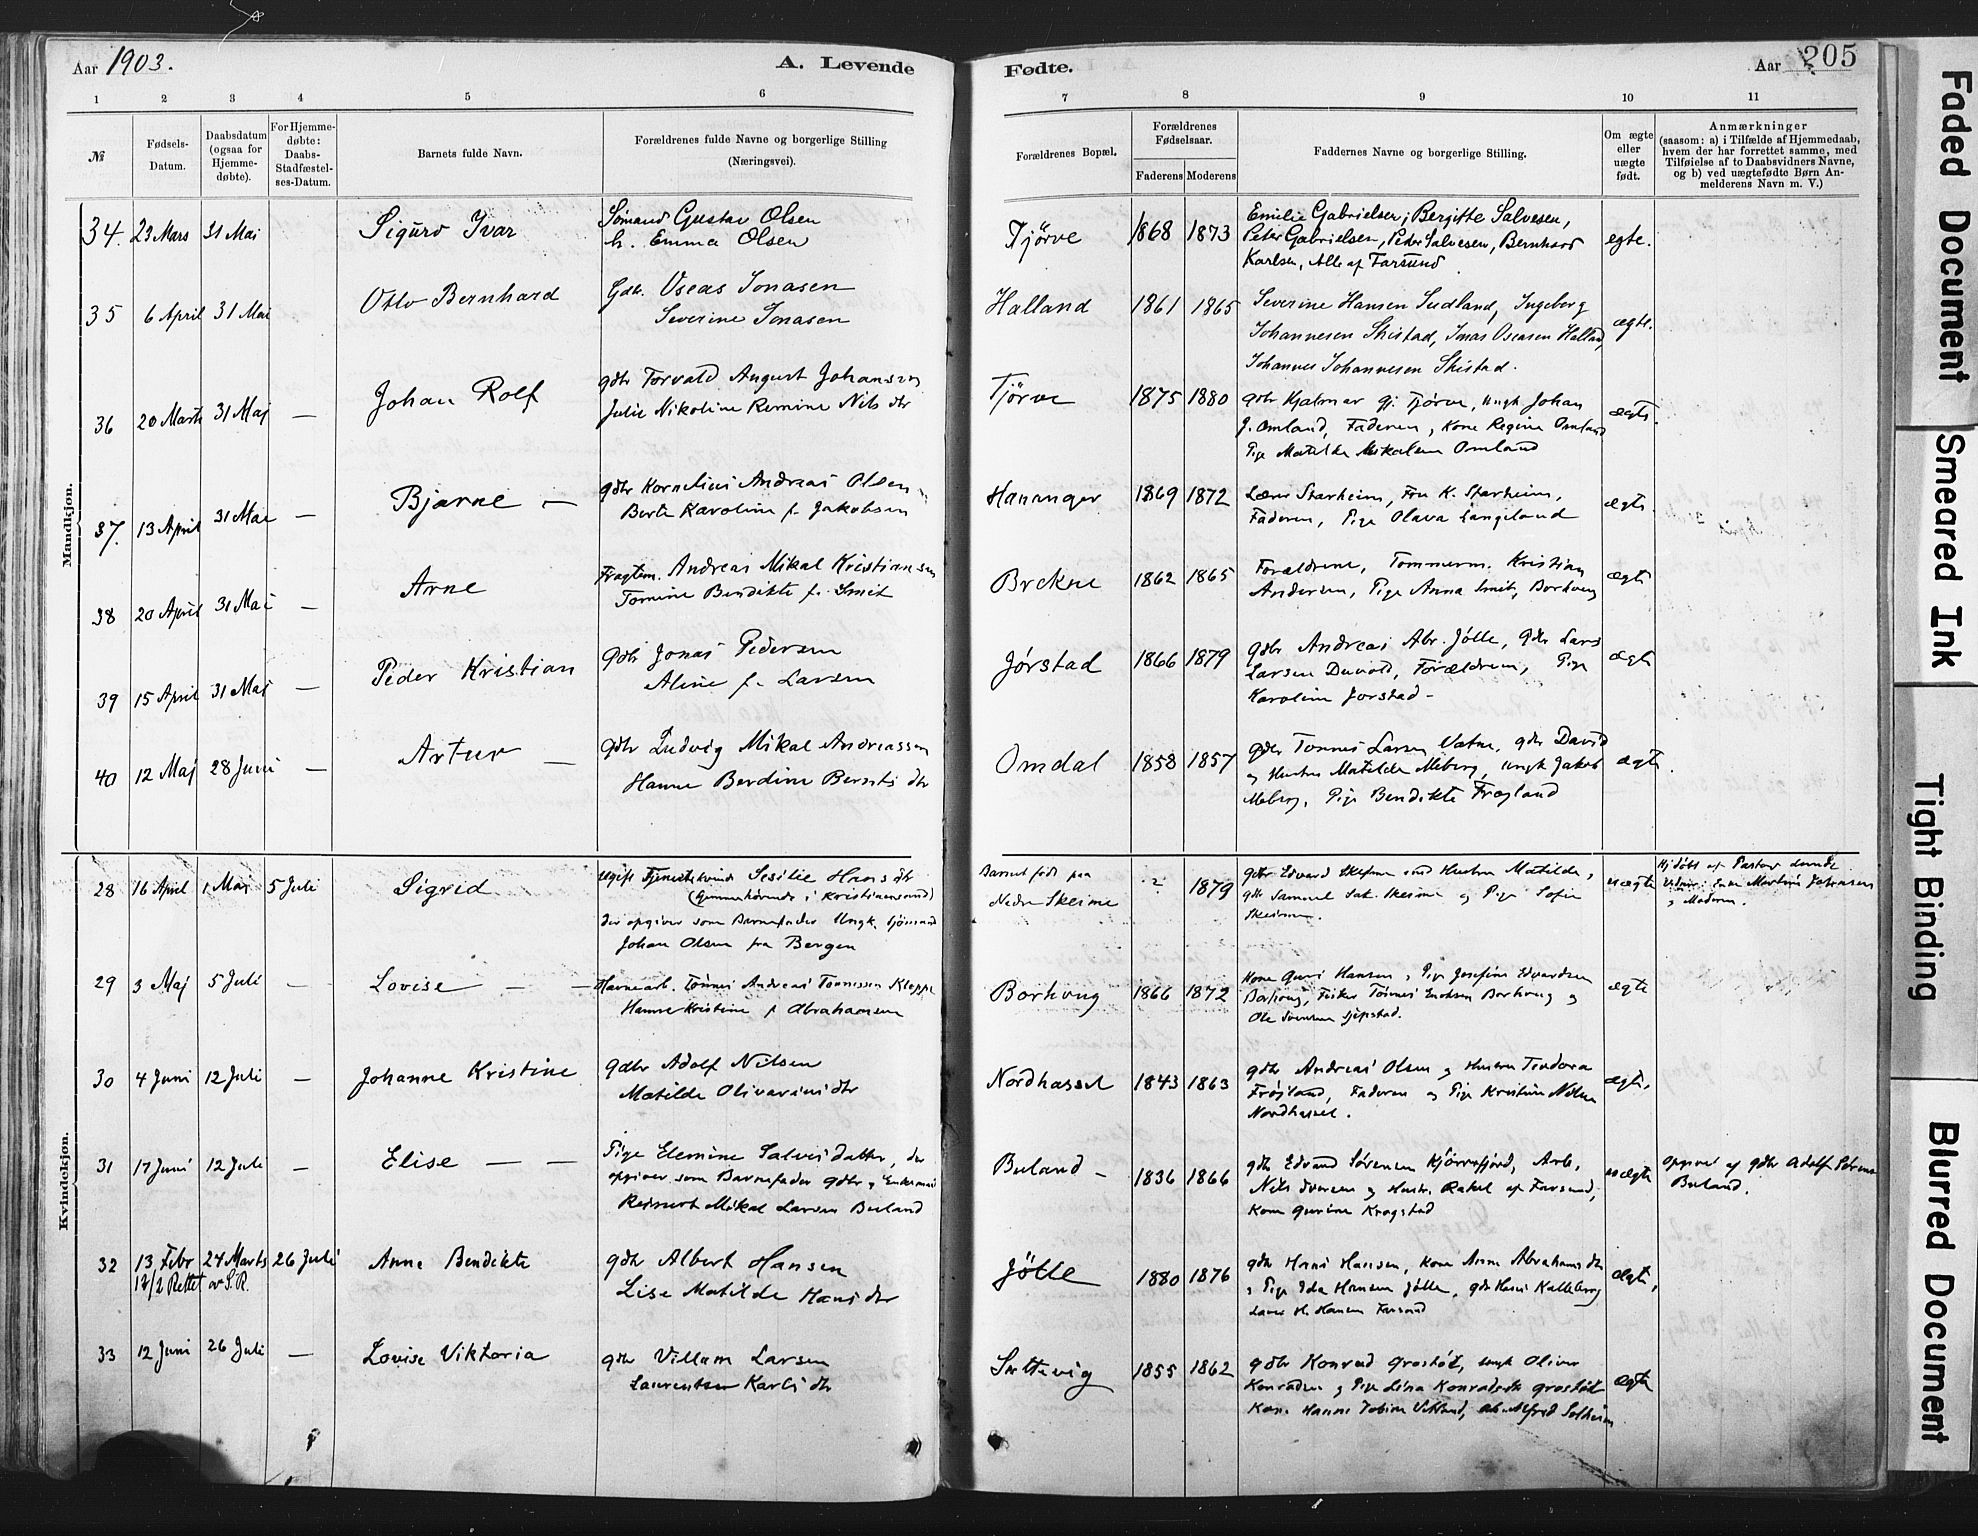 Aar 1903.
A. Levende
Fødte.
Aar
205
1 2 3 4 5 6 7 8 9 10 11
№
Fødsels-Datum.
Daabsdatum (ogsaa for Hjemme-døbte).
For Hjemme-døbte: Daabs-Stadfæstel-ses-Datum.
Barnets fulde Navn.
Forældrenes fulde Navne og borgerlige Stilling
(Næringsvei).
Forældrenes Bopæl.
Forældrenes Fødselsaar.
Faderens Moderens
Faddernes Navne og borgerlige Stilling.
Om ægte eller uægte født.
Anmærkninger
(saasom: a) i Tilfælde af Hjemmedaab,
hvem der har forrettet samme, med
Tilføielse af to Daabsvidners Navne,
og b) ved uægtefødte Børn An-
melderens Navn m. V.)
Mandkjøn.
34. 23 Mars 31 Mai Sigurd Ivar
Sømand Gustav Olsen
h. Emma Olsen
Tjørve 1868 1873
Emilie Gabrielsen, Bergitte Salvesen,
Peter Gabrielsen, Peder Salvesen, Bernhard
Karlsen, Alle af Farsund
egte.
35 6 April 31 Mai Otto Bernhard
Gdb. Oseas Jonasen
Severine Jonasen
Halland 1861 1865
Severine Hansen Sudland, Ingeborg
Johannesen Skistad, Jonas Oseasen Halland,
Johannes Johannesen Skistad.
ægte.
36 20 Marts 31 Maj — Johan Rolf
gdbr Torvald August Johansen
Julie Nikoline Remine Nils dtr
Tjørve 1875 1880
gdbr Hjalmar Gj. Tjørve, Ungk Johan
J. Omland, Faderen, Kone Regine Omland
Pige Matilde Mikalsen Omland
ægte.
37. 13 April 31 Mai — Bjarne —
gdbr Kornelius Andreas Olsen
Berte Karoline f. Jakobsen
Hananger 1869 1872
Lærer Starheim, Fru K. Starheim,
Faderen, Pige Olava Langeland
ægte.
38 20 April 31 Mai — Arne
Fragtem. Andreas Mikal Kristiansen
Tomine Bendikte f. Smit
Brekne 1862 1865
Forældrene, Tømmerm. Kristian
Andersen, Pige Anna Smit, Borhoug
ægte
39 15 April 31 Maj — Peder Kristian
Gdbr Jonas Pedersen
Aline f. Larsen
Jørstad 1866 1879
gdbr Andreas Abr. Jølle, Gdbr Lars
Larsen Duvold, Forældrene, Pige
Karoline Jørstad —
ægte
40 12 Maj 28 Juni — Artur —
gdbr Ludvig Mikal Andreassen
Hanne Berdine Bernts dtr
Omdal 1858 1857
gdbr Tonnes Larsen Vatne, gdbr David
og Hustru Matilde Meberg, Ungk Jakob
Meberg, Pige Bendikte Frøyland
ægte.
Kvindekjøn.
28 16 April 1 Maj 5 Juli Sigrid
Ugift Tjenestekvinde Sesilie Hans dtr
(hjemmehørende i Kristianssand)
der opgiver som Barnefader Ungk. Sjømand
Johan Olsen fra Bergen
Barnet født paa
Nedre Skeime
? 1879
gdbr Edvard Skeime med Hustru Matilde,
gdb Samuel Sak. Skeime og Pige Sofie
Skeime.
uægte
Hj.døbt af Pastor Lunde
og Moderen.
29 3 Maj 5 Juli — Lovise — —
Havnearb. Tønnes Andreas Tønnessen Kleppe
Hanne Kristine f Abrahamsen
Borhoug 1866 1872
Kone Guri Hansen, Pige Josefine Edvardsen
Borhoug, Fisker Tønnes Enoksen Borhoug og
ægte
30 4 Juni 12 Juli — Johanne Kristine
gdbr Adolf Nilsen
Matilde Olivarius dtr
Nordhassel 1843 1863
gdbr Andreas Olsen og Hustru Teodora
Frøiland, Faderen og Pige Kristine Nilsen
Nordhassel.
ægte.
31 17 Juni 12 Juli — Elise — —
Pige Elemine Salves datter, der
opgiver som Barnefader gdbr og Enkemand
Reinert Mikal Larsen Buland
Buland — 1836 1866
gdb Edvard Sørensen Kjørrefjord, Arb.
Nils Iversen og Hustr. Rakel af Farsund,
Kone Gurine Kragstad
uægte
opgivet af gdbr Adolf
Buland.
32 13 Febr 24 Marts 26 Juli Anne Bendikte
17/2 Rettet av S.R.
gdbr Albert Hansen
Lise Matilde Hans dtr
Jølle 1880 1876
gdb Hans Hansen, Kone Anne Abrahams dtr
, Pige Ida Hansen Jølle, gdb Hans Kalleberg
Farsund
ægte,
33 12 Juni 26 Juli — Lovise Viktoria
gdbr Villum Larsen
Laurentse Karls dtr
Sættevig 1855 1862
gdbr Konrad Grostøl, Ungk Oliver
Konradsen og Pige Lina Konradsdtr Grostøl
Kone Hanne Tobine Vatland, Alfred Solheim
ægte
Faded Document
Smeared Ink
Tight Binding
Blurred Document